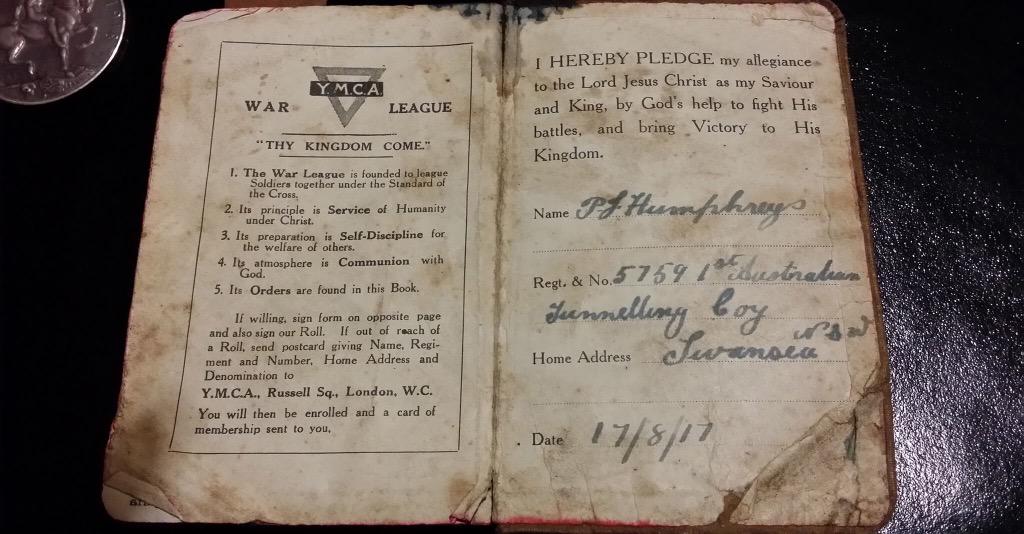 Y.M.C.A.
WAR LEAGUE
"THY KINGDOM COME."
1. The War League is founded to league
Soldiers together under the Standard of
the Cross.
2. Its principle is Service of Humanity
under Christ.
3. Its preparation is Self-Discipline for
the welfare of others.
4. Its atmosphere is Communion with
God.
5. Its Orders are found in this Book.
If willing, sign form on opposite page
and also sign our Roll. If out of reach of
a Roll, send postcard giving Name, Regi-
ment and Number, Home Address and
Denomination to
Y.M.C.A., Russell Sq., London, W.C.
You will then be enrolled and a card of
membership sent to you.
I HEREBY PLEDGE my allegiance
to the Lord Jesus Christ as my Saviour
and King, by God's help to fight His
battles, and bring Victory to His
Kingdom.
Name P J Humphreys
Regt. & No. 5759 1st Australian
Tunnelling Coy
Home Address Swansea N S W
Date 17/8/17